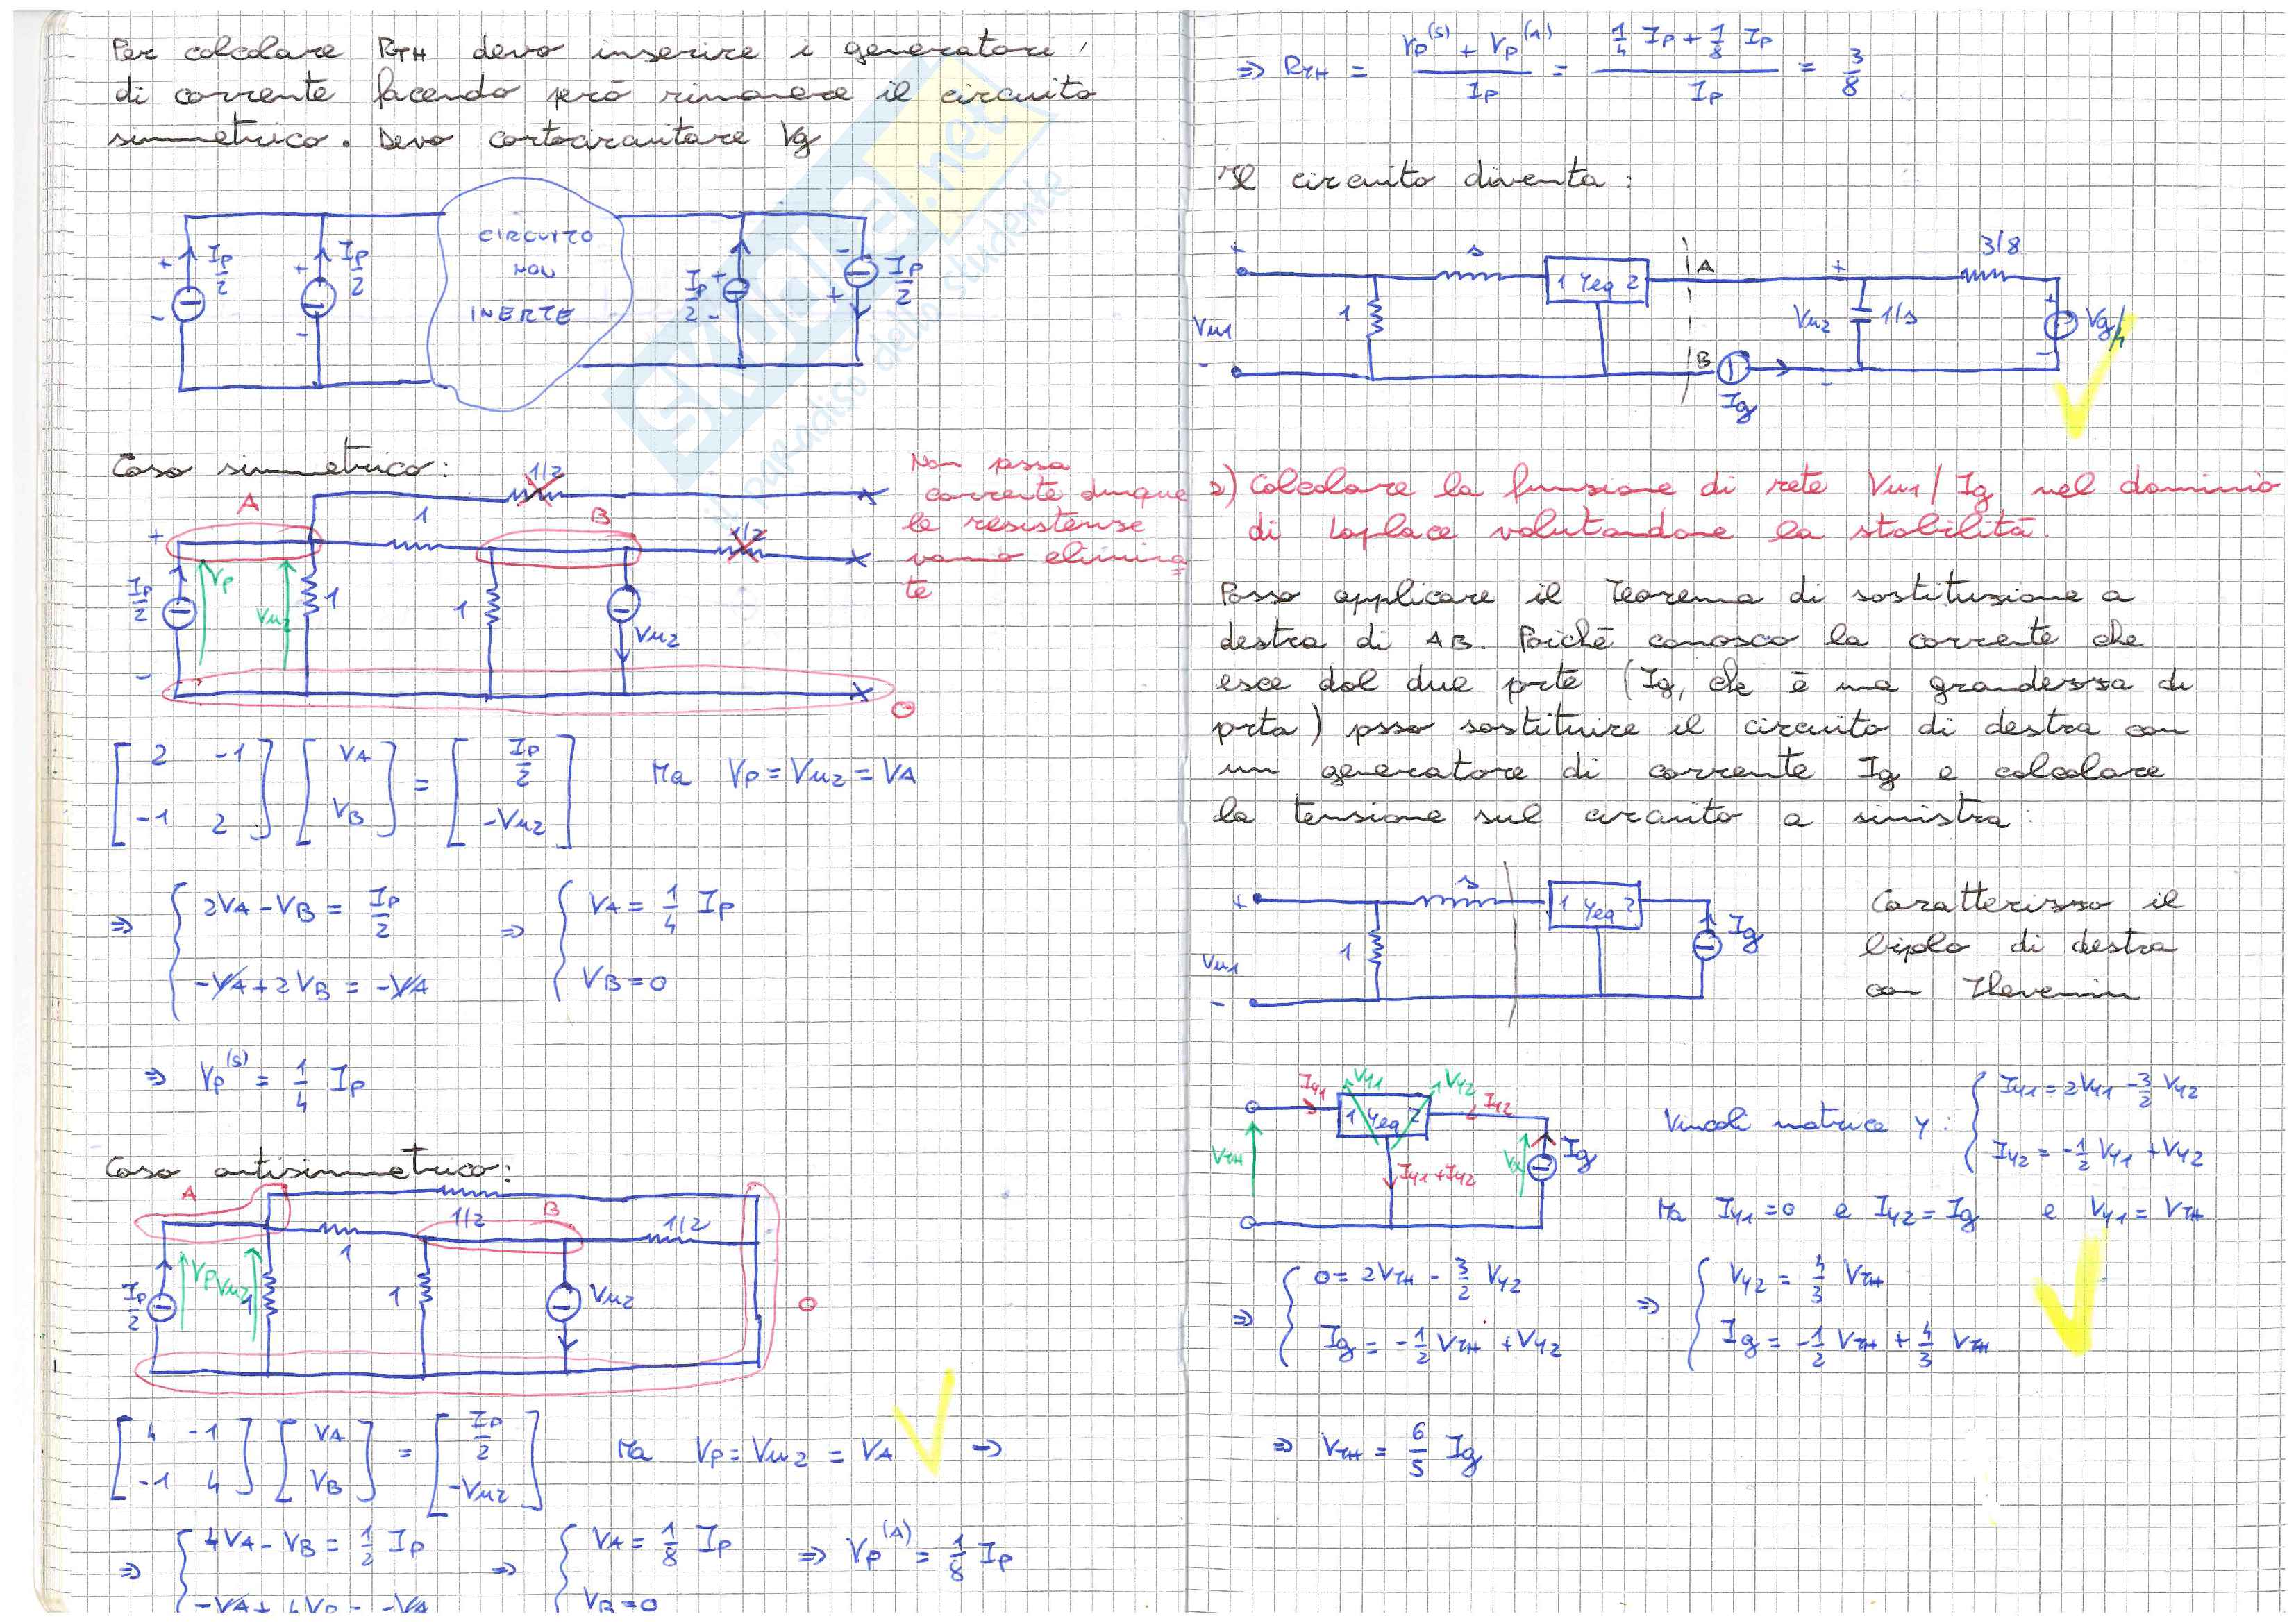 Per calcolare RTH devo inserire i generatori
di corrente facendo però rimanere il circuito
simmetrico. Devo cortocircuitare Vg
+ Ip/2 -
+ Ip/2 -
CIRCUITO
NON
INERTE
Ip/2 + -
- Ip/2 +
SKUOLA.net
il paradiso dello studente
Caso simmetrico:
1/2
Non passa
corrente dunque
le resistenze
vanno elimina
te
A
1
B
1/2
+
Ip/2
-
Vp
Vu2
1
1
Vu2
0
[2 -1; -1 2] [VA; VB] = [Ip/2; -Vu2] Ma Vp = Vu2 = VA
⇒ { 2VA - VB = Ip/2 ⇒ { VA = 1/4 Ip
-VA + 2VB = -VA VB = 0
⇒ Vp(S) = 1/4 Ip
Caso antisimmetrico:
A
1/2
B
1/2
1
Ip/2
Vp
Vu2
1
1
Vu2
0
[4 -1; -1 4] [VA; VB] = [Ip/2; -Vu2] Ma Vp = Vu2 = VA →
⇒ { 4VA - VB = 1/2 Ip ⇒ { VA = 1/8 Ip ⇒ Vp(A) = 1/8 Ip
-VA + 4VB = -VA VB = 0
⇒ RTH = (Vp(S) + Vp(A))/Ip = (1/4 Ip + 1/8 Ip)/Ip = 3/8
Il circuito diventa:
+
Vu1
-
1
s
1 Yeq 2
A
B
Ig
+
Vu2
-
1/s
3/8
+
Vg/4
-
2) Calcolare la funzione di rete Vu1/Ig nel dominio
di Laplace valutandone la stabilità.
Posso applicare il Teorema di sostituzione a
destra di AB. Poiché conosco la corrente che
esce dal due porte (Ig, che è una grandezza di
porta) posso sostituire il circuito di destra con
un generatore di corrente Ig e calcolare
la tensione sul circuito a sinistra:
+
Vu1
-
1
s
1 Yeq 2
Ig
Caratterizzo il
bipolo di destra
con Thevenin
VTH
Iy1
Vy1
1 Yeq 2
Vy2
Iy2
Iy1+Iy2
Ig
Vincoli matrice Y: { Iy1 = 2Vy1 - 3/2 Vy2
Iy2 = -1/2 Vy1 + Vy2
Ma Iy1 = 0 e Iy2 = Ig e Vy1 = VTH
⇒ { 0 = 2VTH - 3/2 Vy2 ⇒ { Vy2 = 4/3 VTH
Ig = -1/2 VTH + Vy2 Ig = -1/2 VTH + 4/3 VTH
⇒ VTH = 6/5 Ig